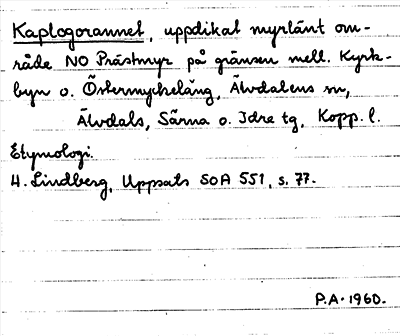 Kaplogorannet, uppdikat myrlänt om-
råde NO Prästmyr på gränsen mell. Kyrk-
byn o. Östermyckeläng, Älvdalens sn,
Älvdals, Särna o. Idre tg, Kopp. l.
Etymologi.
H. Lindberg, Uppsats SOA 551, s. 77.
P.A. 1960.